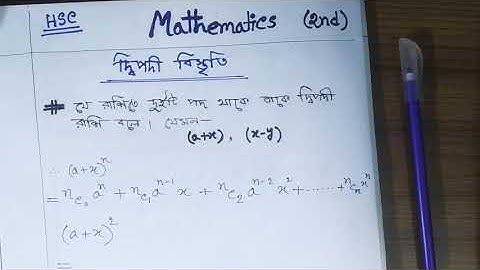 HSC
Mathematics (2nd)
দ্বিপদী বিস্তৃতি
# যে রাশিতে দুইটি পদ থাকে তাকে দ্বিপদী
রাশি বলে। যেমন—
(a+x), (x-y)
∴ (a+x)ⁿ
= ⁿC₀ aⁿ + ⁿC₁ aⁿ⁻¹ x + ⁿC₂ aⁿ⁻² x² + ...... + ⁿCₙ xⁿ
(a+x)²
=